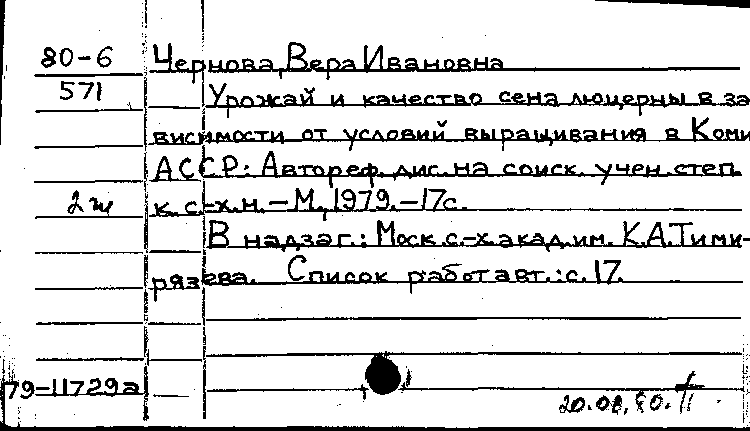 80-6 Чернова, Вера Ивановна
571 Урожай и качество сена люцерны в за
висимости от условий выращивания в Коми
АССР: Автореф. дис. на соиск. учен. степ.
2ж к. с.-х. н. – М., 1979. – 17с.
В надзаг.: Моск. с.-х. акад. им. К.А. Тими-
рязева. Список работ авт.: с. 17.
79-11729а
20.08.80.